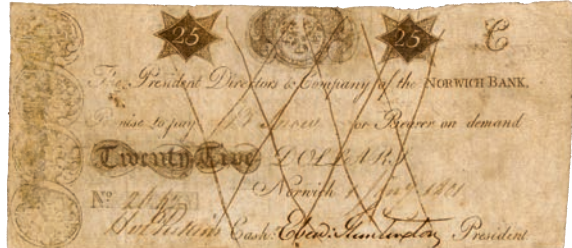 25 25 C
The President Directors & Company of the NORWICH BANK,
Promise to pay or Bearer on demand
Twenty Five DOLLARS
Norwich 1801
No.
Perkins Cash: Eben: Huntington President